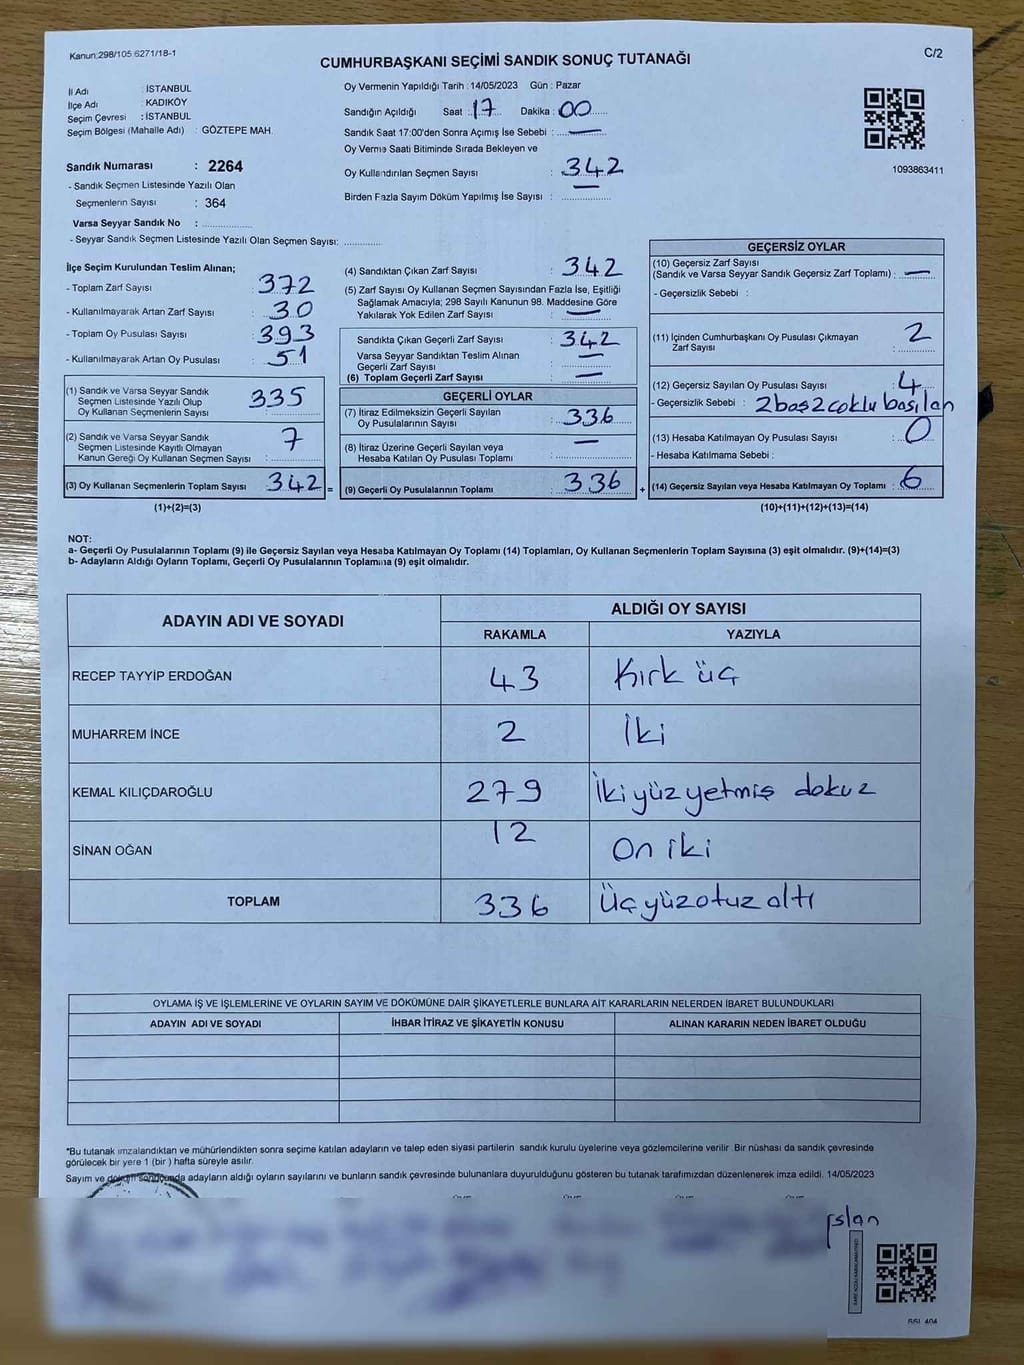 Kanun:298/105 6271/18-1
C/2
CUMHURBAŞKANI SEÇİMİ SANDIK SONUÇ TUTANAĞI
İl Adı : İSTANBUL
İlçe Adı : KADIKÖY
Seçim Çevresi : İSTANBUL
Seçim Bölgesi (Mahalle Adı) : GÖZTEPE MAH.
Sandık Numarası : 2264
- Sandık Seçmen Listesinde Yazılı Olan
Seçmenlerin Sayısı : 364
Varsa Seyyar Sandık No :
- Seyyar Sandık Seçmen Listesinde Yazılı Olan Seçmen Sayısı:
Oy Vermenin Yapıldığı Tarih : 14/05/2023 Gün : Pazar
Sandığın Açıldığı Saat : 17 Dakika : 00
Sandık Saat 17:00'den Sonra Açılmış İse Sebebi : —
Oy Verme Saati Bitiminde Sırada Bekleyen ve
Oy Kullandırılan Seçmen Sayısı : 342
Birden Fazla Sayım Döküm Yapılmış İse Sayısı : —
1093863411
İlçe Seçim Kurulundan Teslim Alınan;
- Toplam Zarf Sayısı : 372
- Kullanılmayarak Artan Zarf Sayısı : 30
- Toplam Oy Pusulası Sayısı : 393
- Kullanılmayarak Artan Oy Pusulası : 51
(1) Sandık ve Varsa Seyyar Sandık
Seçmen Listesinde Yazılı Olup
Oy Kullanan Seçmenlerin Sayısı : 335
(2) Sandık ve Varsa Seyyar Sandık
Seçmen Listesinde Kayıtlı Olmayan
Kanun Gereği Oy Kullanan Seçmen Sayısı : 7
(3) Oy Kullanan Seçmenlerin Toplam Sayısı : 342 =
(1)+(2)=(3)
(4) Sandıktan Çıkan Zarf Sayısı : 342
(5) Zarf Sayısı Oy Kullanan Seçmen Sayısından Fazla İse, Eşitliği
Sağlamak Amacıyla; 298 Sayılı Kanunun 98. Maddesine Göre
Yakılarak Yok Edilen Zarf Sayısı : —
Sandıkta Çıkan Geçerli Zarf Sayısı : 342
Varsa Seyyar Sandıktan Teslim Alınan
Geçerli Zarf Sayısı : —
(6) Toplam Geçerli Zarf Sayısı : —
GEÇERLİ OYLAR
(7) İtiraz Edilmeksizin Geçerli Sayılan
Oy Pusulalarının Sayısı : 336
(8) İtiraz Üzerine Geçerli Sayılan veya
Hesaba Katılan Oy Pusulası Toplamı : —
(9) Geçerli Oy Pusulalarının Toplamı : 336 +
GEÇERSİZ OYLAR
(10) Geçersiz Zarf Sayısı
(Sandık ve Varsa Seyyar Sandık Geçersiz Zarf Toplamı) : —
- Geçersizlik Sebebi :
(11) İçinden Cumhurbaşkanı Oy Pusulası Çıkmayan
Zarf Sayısı : 2
(12) Geçersiz Sayılan Oy Pusulası Sayısı : 4
- Geçersizlik Sebebi : 2 boş 2 coklu basılan
(13) Hesaba Katılmayan Oy Pusulası Sayısı : 0
- Hesaba Katılmama Sebebi :
(14) Geçersiz Sayılan veya Hesaba Katılmayan Oy Toplamı : 6
(10)+(11)+(12)+(13)=(14)
NOT:
a- Geçerli Oy Pusulalarının Toplamı (9) ile Geçersiz Sayılan veya Hesaba Katılmayan Oy Toplamı (14) Toplamları, Oy Kullanan Seçmenlerin Toplam Sayısına (3) eşit olmalıdır. (9)+(14)=(3)
b- Adayların Aldığı Oyların Toplamı, Geçerli Oy Pusulalarının Toplamına (9) eşit olmalıdır.
ADAYIN ADI VE SOYADI ALDIĞI OY SAYISI
RAKAMLA YAZIYLA
RECEP TAYYİP ERDOĞAN 43 Kırk üç
MUHARREM İNCE 2 İki
KEMAL KILIÇDAROĞLU 279 İki yüz yetmiş dokuz
SİNAN OĞAN 12 On iki
TOPLAM 336 Üç yüz otuz altı
OYLAMA İŞ VE İŞLEMLERİNE VE OYLARIN SAYIM VE DÖKÜMÜNE DAİR ŞİKAYETLERLE BUNLARA AİT KARARLARIN NELERDEN İBARET BULUNDUKLARI
ADAYIN ADI VE SOYADI İHBAR İTİRAZ VE ŞİKAYETİN KONUSU ALINAN KARARIN NEDEN İBARET OLDUĞU
*Bu tutanak imzalandıktan ve mühürlendikten sonra seçime katılan adayların ve talep eden siyasi partilerin sandık kurulu üyelerine veya gözlemcilerine verilir. Bir nüshası da sandık çevresinde
görülecek bir yere 1 (bir ) hafta süreyle asılır.
Sayım ve döküm sonucunda adayların aldığı oyların sayılarını ve bunların sandık çevresinde bulunanlara duyurulduğunu gösteren bu tutanak tarafımızdan düzenlenerek imza edildi. 14/05/2023